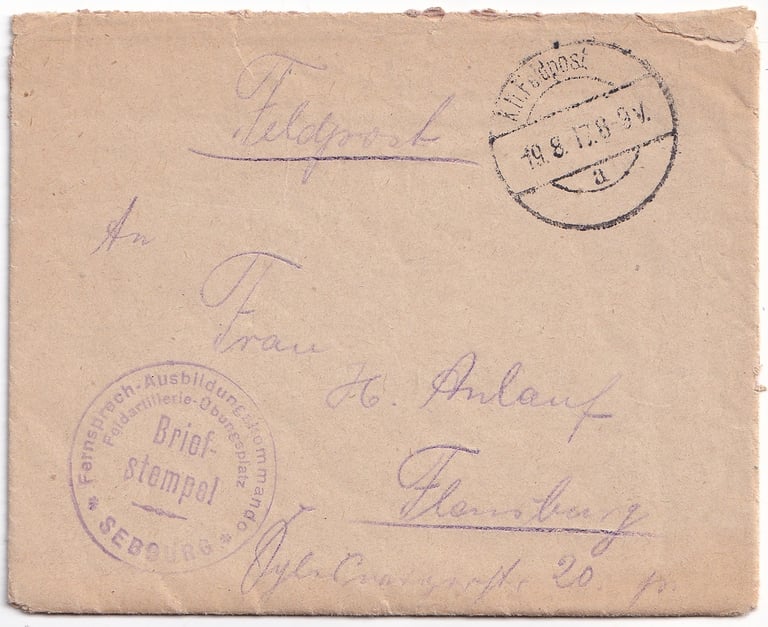 Feldpost
K.D. Feldpost
19.8.17.8-9V.
a
An
Frau
H. Anlauf
Flensburg
20. p.
Fernsprech-Ausbildungskommando
Feldartillerie-Übungsplatz
Brief-
stempel
* SEBOURG *